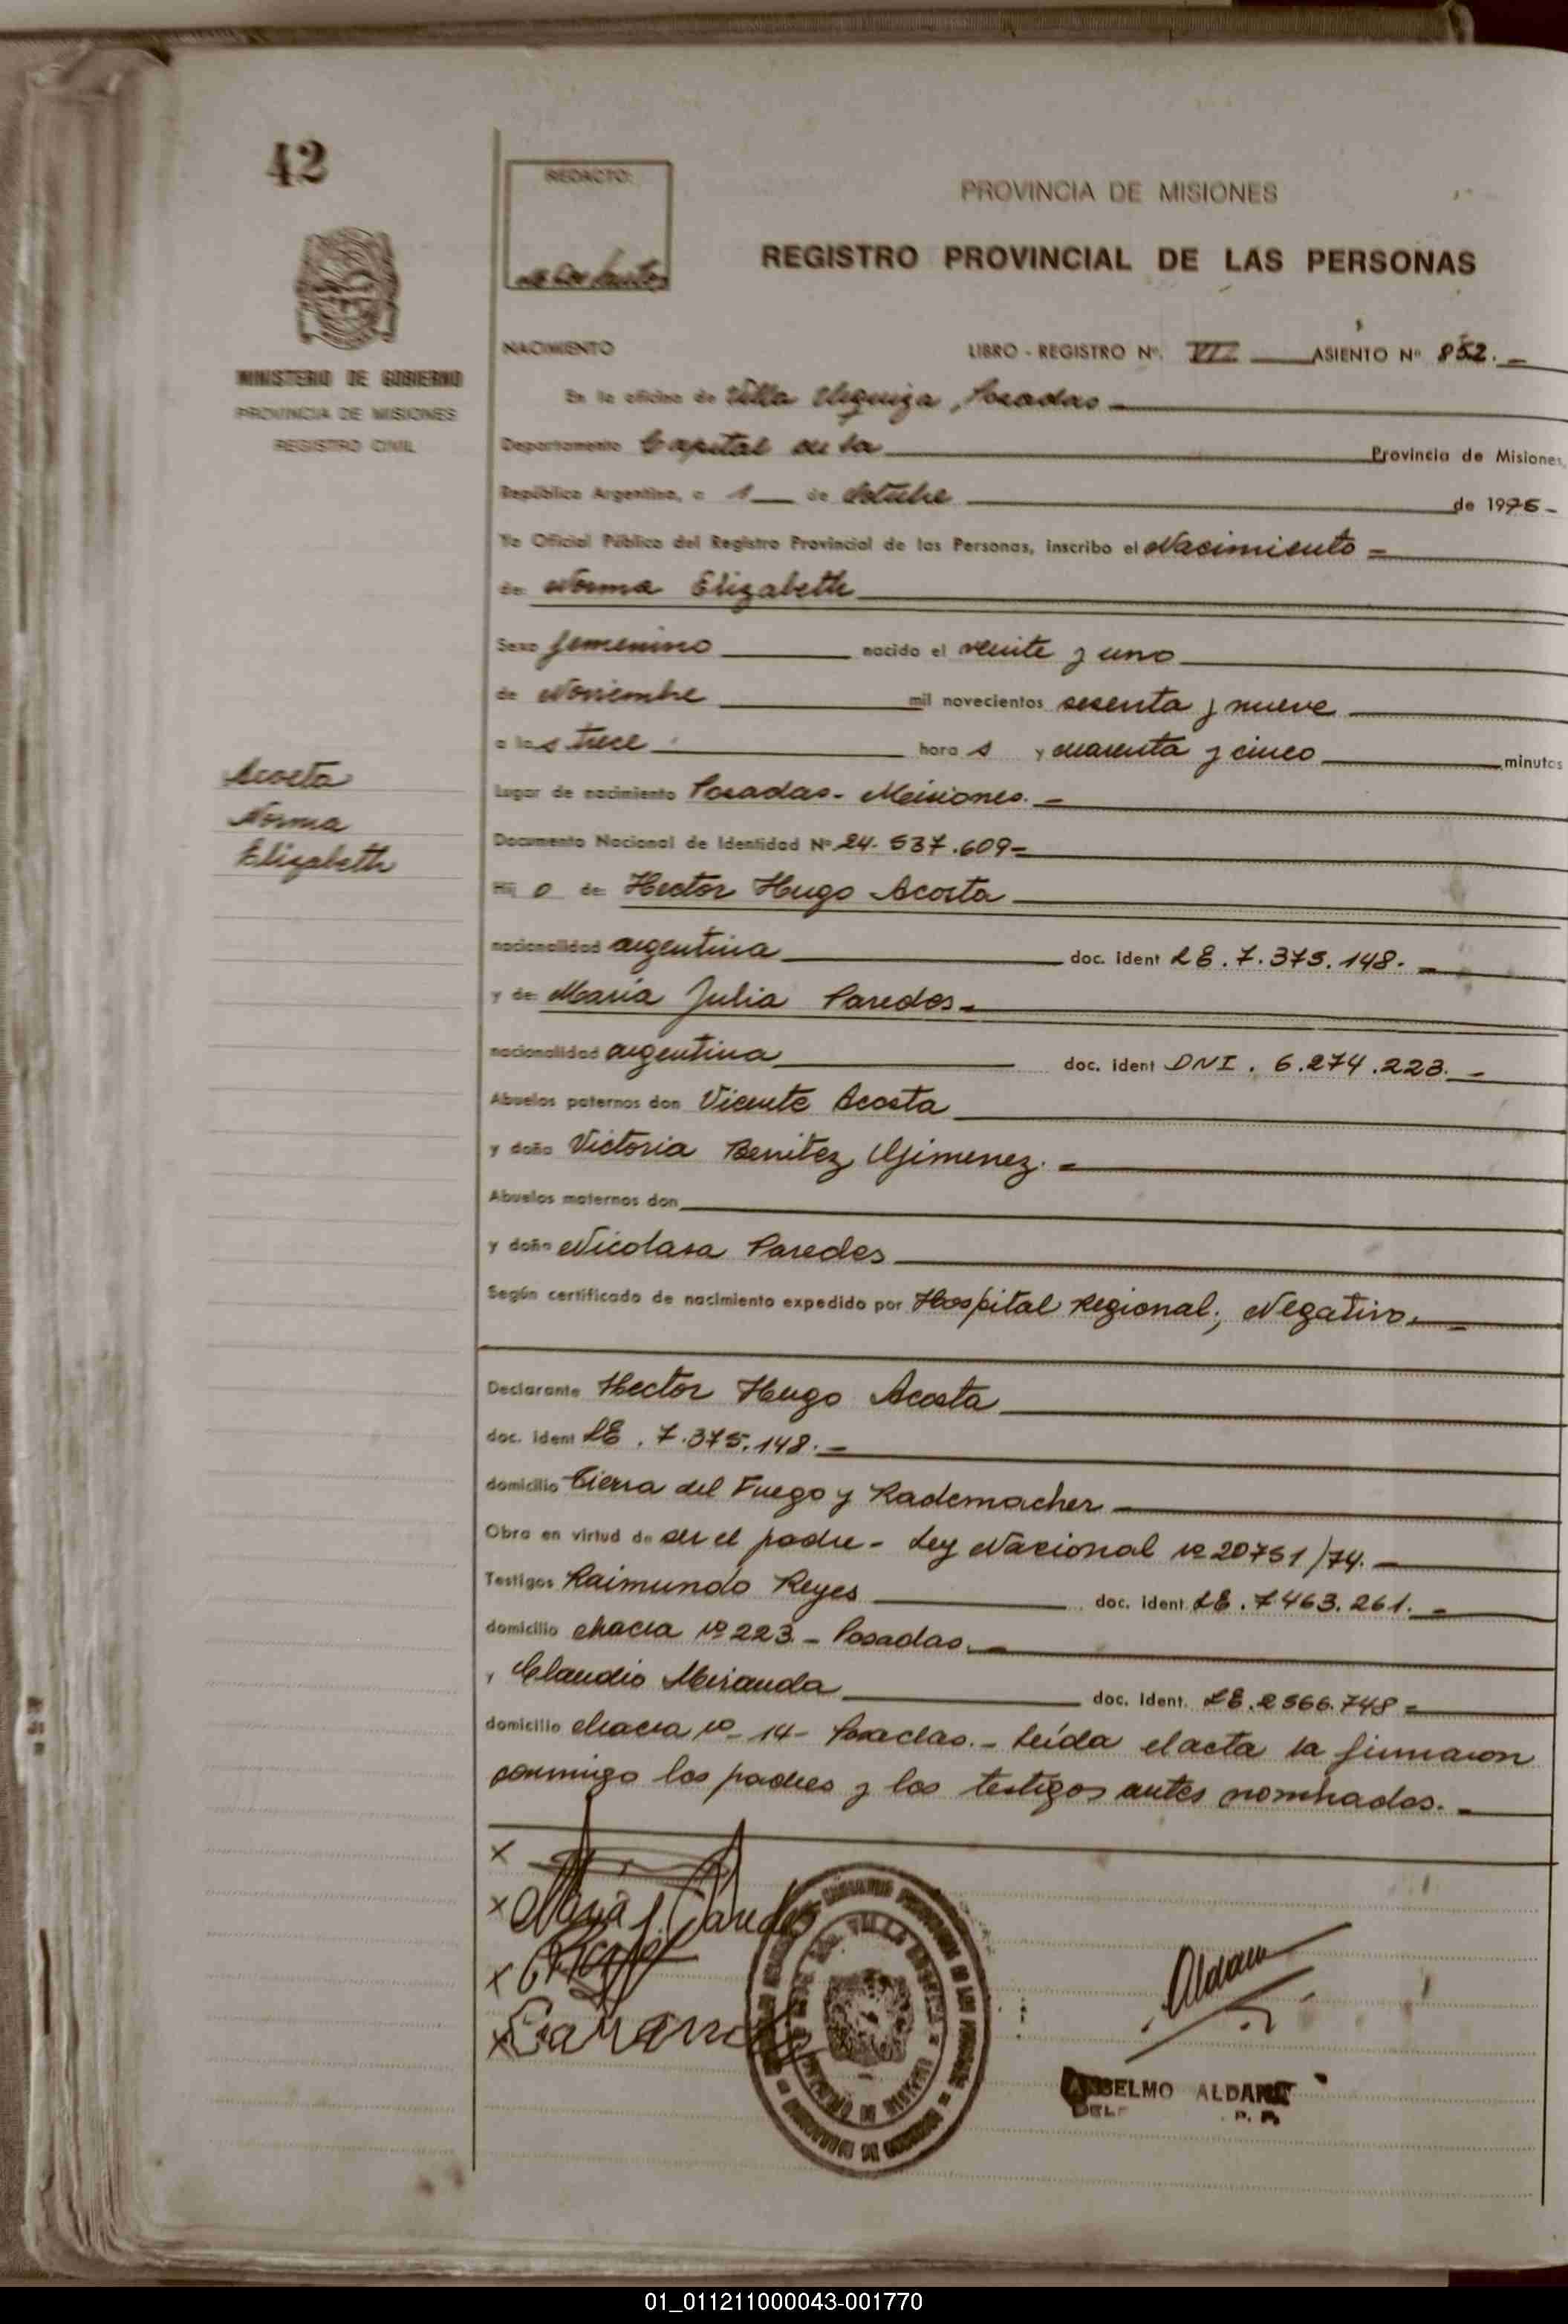 42
REDACTO:
PROVINCIA DE MISIONES
REGISTRO PROVINCIAL DE LAS PERSONAS
MINISTERIO DE GOBIERNO
PROVINCIA DE MISIONES
REGISTRO CIVIL
NACIMIENTO LIBRO - REGISTRO Nº. VII ASIENTO Nº 852. -
En la oficina de Villa Urquiza, Posadas -
Departamento Capital de la Provincia de Misiones,
República Argentina, a 1 de Octubre de 1975 -
Yo Oficial Público del Registro Provincial de las Personas, inscribo el Nacimiento =
de Norma Elizabeth
Sexo femenino nacido el veinte y uno
de Noviembre mil novecientos sesenta y nueve
a las trece hora s y cuarenta y cinco minutos
Acosta
Norma
Elizabeth
Lugar de nacimiento Posadas - Misiones. -
Documento Nacional de Identidad Nº 24. 537.609 =
Hij o de: Hector Hugo Acosta
nacionalidad argentina doc. ident LE. 7. 375. 148. -
y de: Maria Julia Paredes -
nacionalidad argentina doc. ident DNI. 6.274.223. -
Abuelos paternos don Vicente Acosta
y doña Victoria Benitez Gimenez. -
Abuelos maternos don
y doña Nicolasa Paredes
Según certificado de nacimiento expedido por Hospital Regional; Negativo. -
Declarante Hector Hugo Acosta
doc. ident LE. 7.375.148. -
domicilio Tierra del Fuego y Rademacher -
Obra en virtud de ser el padre - Ley Nacional nº 20751/74. -
Testigos Raimundo Reyes doc. ident LE. 7463.261. -
domicilio chacra nº 223. - Posadas. -
y Claudio Miranda doc. ident. LE. 2566.748 =
domicilio chacra nº 14 - Posadas. - Leída el acta la firmaron
conmigo los padres y los testigos antes nombrados. -
x
x Maria J. Paredes
x
x
Aldana
ANSELMO ALDANA
01_011211000043-001770